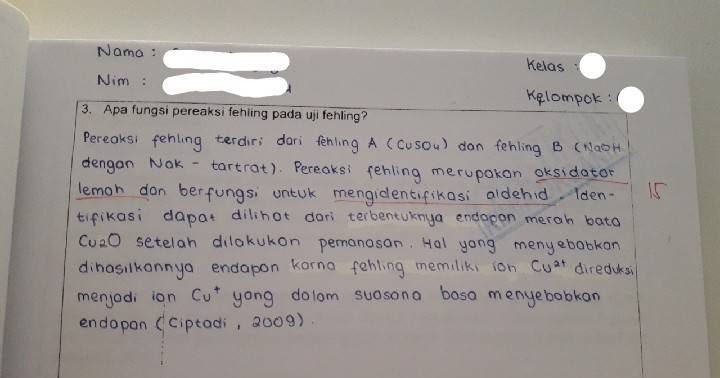 Nama :
Nim :
Kelas :
Kelompok :
3. Apa fungsi pereaksi fehling pada uji fehling?
Pereaksi fehling terdiri dari fehling A (CuSO4) dan fehling B (NaOH
dengan Nak - tartrat). Pereaksi fehling merupakan oksidator
lemah dan berfungsi untuk mengidentifikasi aldehid. Iden-
15
tifikasi dapat dilihat dari terbentuknya endapan merah bata
Cu2O setelah dilakukan pemanasan. Hal yang menyebabkan
dihasilkannya endapan karna fehling memiliki ion Cu²⁺ direduksi
menjadi ion Cu⁺ yang dalam suasana basa menyebabkan
endapan (Ciptadi, 2009).